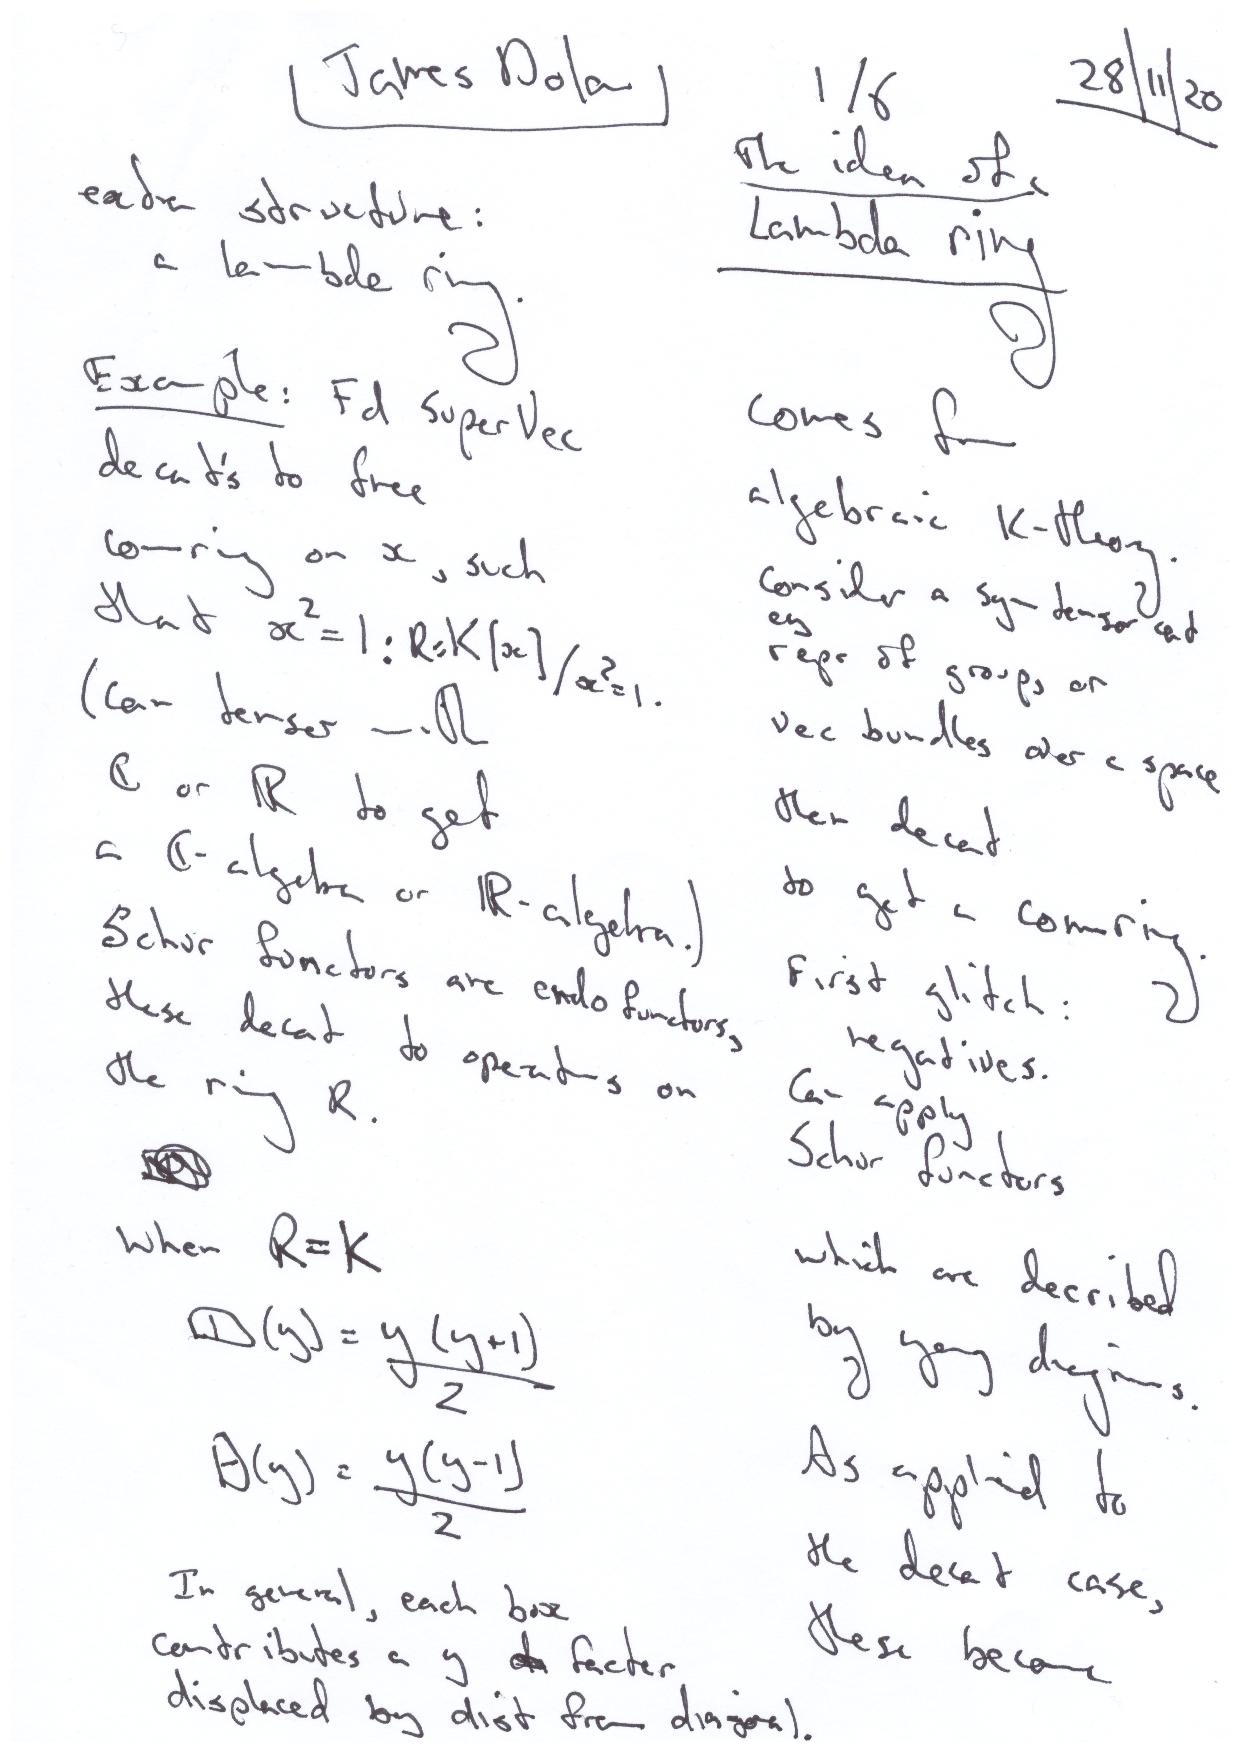 James Dolan
1/6
28/11/20
The idea of a
Lambda ring
comes from
algebraic K-theory.
Consider a sym tensor cat
eg
reps of groups or
vec bundles over a space
then decat
to get a comm ring.
First glitch:
negatives.
Can apply
Schur functors
which are decribed
by young diagrams.
As applied to
the decat case,
these become
extra structure:
a lambda ring.
Example: Fd SuperVec
decat's to free
com ring on x, such
that x²=1: R=K[x]/x²=1.
(Can tensor with
ℂ or ℝ to get
a ℂ-algebra or ℝ-algebra.)
Schur functors are endofunctors,
these decat to operators on
the ring R.
When R=K
▭▭(y) = y(y+1)/2
▯(y) = y(y-1)/2
In general, each box
contributes a y factor
displaced by dist from diagonal.